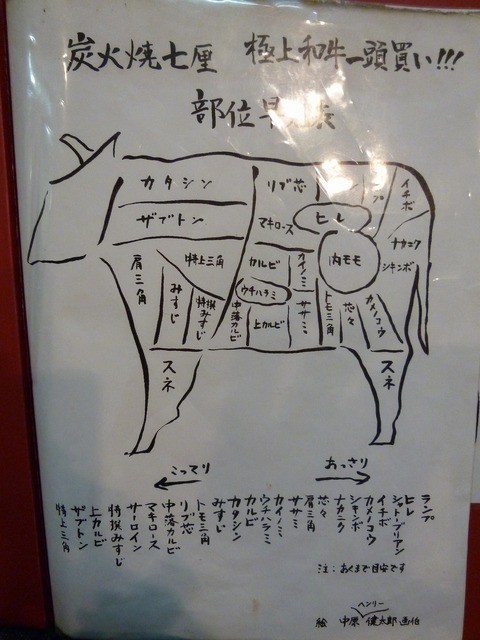 炭火焼七厘 極上和牛一頭買い!!!
部位早見表
カタシン
ザブトン
肩三角
特上三角
みすじ
特撰みすじ
スネ
リブ芯
マキロース
カルビ
ウチハラミ
中落カルビ
上カルビ
カイノミ
ササミ
ヒレ
内モモ
イチボ
ナカニク
シキンボ
トモ三角
芯々
カメノコウ
スネ
こってり
あっさり
ランプ
ヒレ
シャトーブリアン
イチボ
カメノコウ
シキンボ
ナカニク
芯々
肩三角
ササミ
カイノミ
ウチハラミ
カルビ
カタシン
みすじ
トモ三角
リブ芯
中落カルビ
マキロース
サーロイン
特撰みすじ
上カルビ
ザブトン
特上三角
注:あくまで目安です
ヘンリー
絵 中原 健太郎 画伯